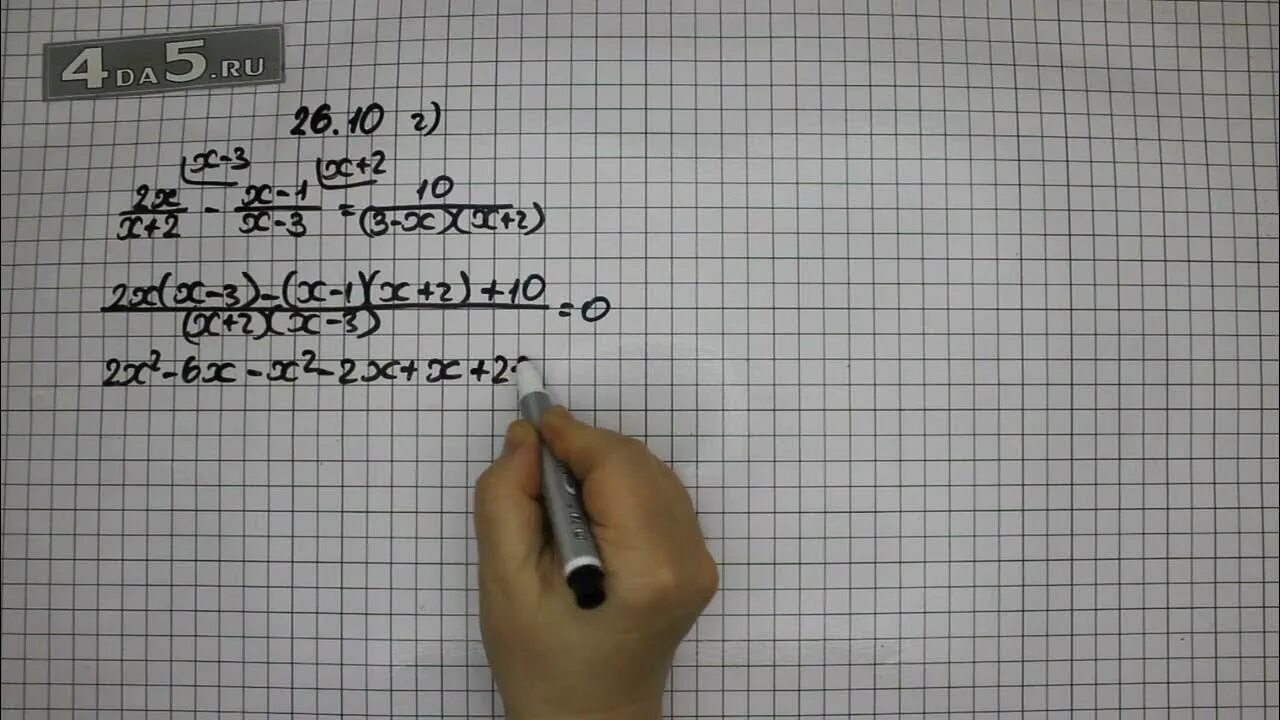 4DA5.RU
26.10 г)
2x/(x+2) ⌊x-3 - (x-1)/(x-3) ⌊x+2 = 10/((3-x)(x+2))
(2x(x-3)-(x-1)(x+2)+10)/((x+2)(x-3)) = 0
2x²-6x-x²-2x+x+2